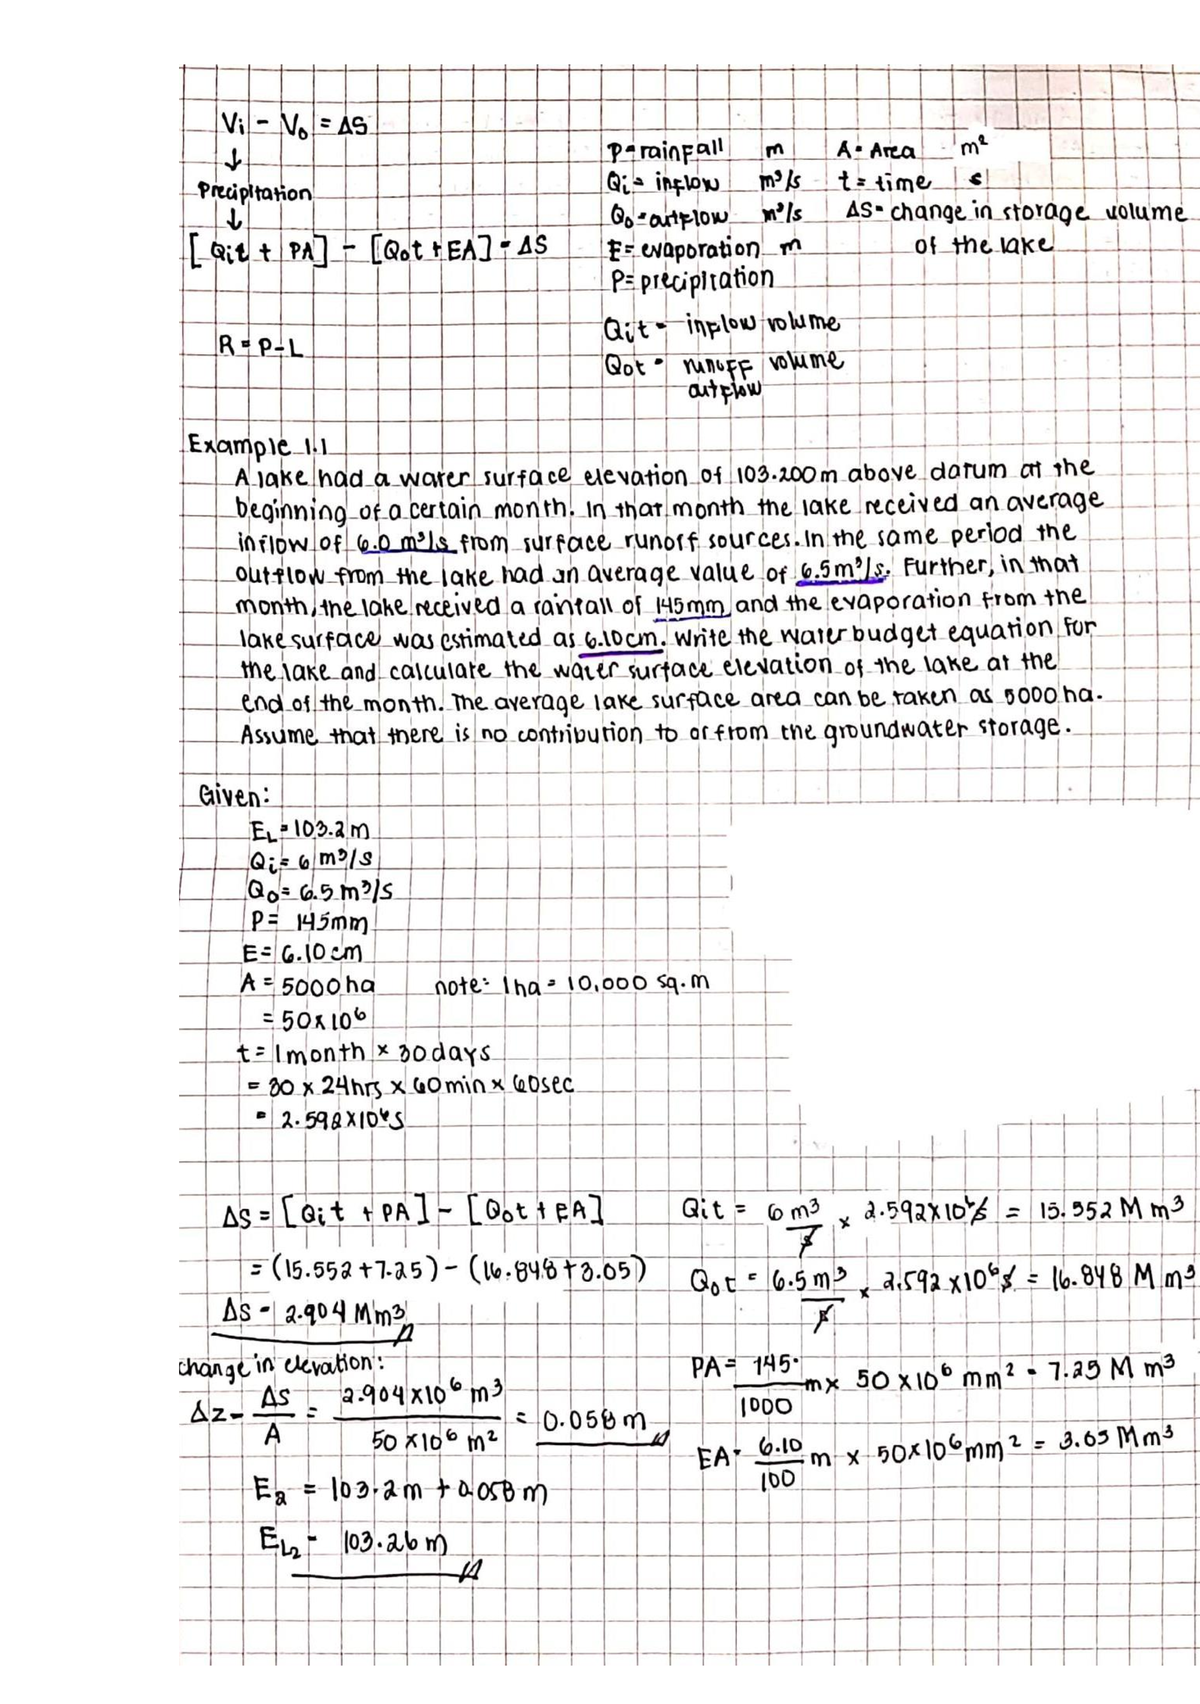 Vi - Vo = ΔS
↓
Precipitation
↓
[Qit + PA] - [Qot + EA] = ΔS
R = P-L
P = rainfall m
Qi = inflow m³/s
Qo = outflow m³/s
E = evaporation m
P = precipitation
Qit = inflow volume
Qot = runoff volume
outflow
A = Area m²
t = time s
ΔS = change in storage volume
of the lake
Example 1.1
A lake had a water surface elevation of 103.200m above datum at the
beginning of a certain month. In that month the lake received an average
inflow of 6.0 m³/s from surface runoff sources. In the same period the
outflow from the lake had an average value of 6.5m³/s. Further, in that
month, the lake received a rainfall of 145mm and the evaporation from the
lake surface was estimated as 6.10cm. Write the water budget equation for
the lake and calculate the water surface elevation of the lake at the
end of the month. The average lake surface area can be taken as 5000 ha.
Assume that there is no contribution to or from the groundwater storage.
Given:
EL = 103.2 m
Qi = 6 m³/s
Qo = 6.5 m³/s
P = 145mm
E = 6.10 cm
A = 5000 ha note: 1ha = 10,000 sq.m
= 50x10⁶
t = 1month x 30 days
= 30 x 24hrs x 60min x 60sec
= 2.592x10⁶s
ΔS = [Qit + PA] - [Qot + EA]
= (15.552 + 7.25) - (16.848 + 3.05)
ΔS = 2.904 Mm³
change in elevation:
Δz = ΔS/A = 2.904x10⁶ m³ / 50x10⁶ m² = 0.058 m
E2 = 103.2m + 0.058 m
EL2 = 103.26 m
Qit = 6 m³/s x 2.592x10⁶s = 15.552 M m³
Qot = 6.5 m³/s x 2.592 x10⁶s = 16.848 M m³
PA = 145/1000 m x 50 x10⁶ mm² = 7.25 M m³
EA = 6.10/100 m x 50x10⁶mm² = 3.05 Mm³